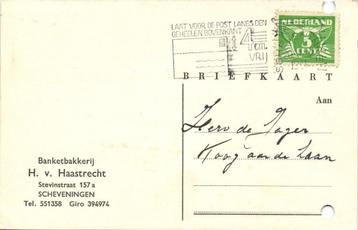 LAAT VOOR DE POST LANGS DEN
GEHEELEN BOVENKANT
4
c.m.
VRIJ
NEDERLAND
3
CENT
BRIEFKAART
Aan
Herv de Jager
Koog aan de Zaan
Banketbakkerij
H. v. Haastrecht
Stevinstraat 157a
SCHEVENINGEN
Tel. 551358 Giro 394974